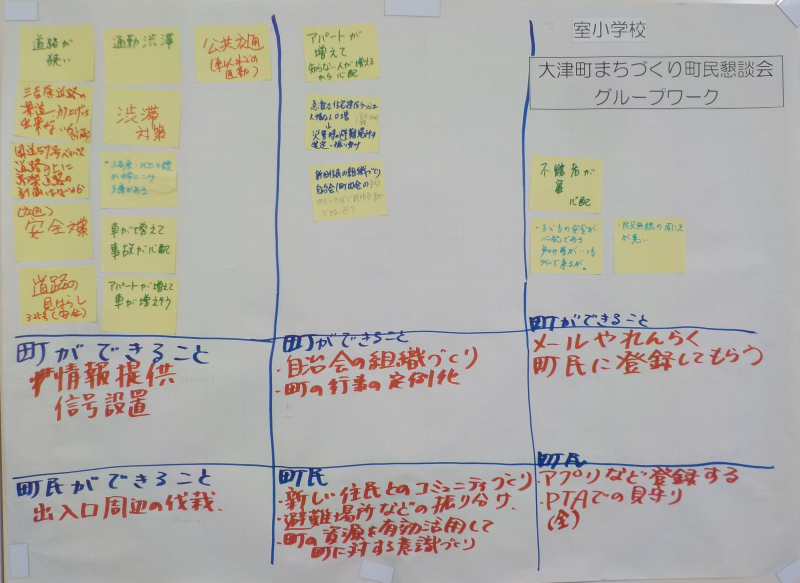 室小学校
大津町まちづくり町民懇談会
グループワーク
道路が
狭い
通勤渋滞
公共交通
(車以外の
通勤)
三吉原道路の
渋滞
対策
国道57号バイパス
道路の上に
(交通)
安全対策
車が増えて
事故が心配
道路の
見はらし
(安全)
アパートが増えて
車が増えそう
町ができること
情報提供
信号設置
町民ができること
出入口周辺の伐栽
アパートが
増えて
知らない人が増える
から心配
人口増
↓
災害時の避難場所の
新旧住民の組織づくり
自治会(町内会の
町ができること
・自治会の組織づくり
・町の行事の定例化
町民
・新しい住民とのコミュニティづくり
・避難場所などの振り分け
・町の資源を有効活用して
町に対する意識づくり
不審者が
心配
・子どもの安全が
心配である
・防災無線の聞こえ
が悪い
町ができること
メールやれんらく
町民に登録してもらう
町民
・アプリなど登録する
・PTAでの見守り